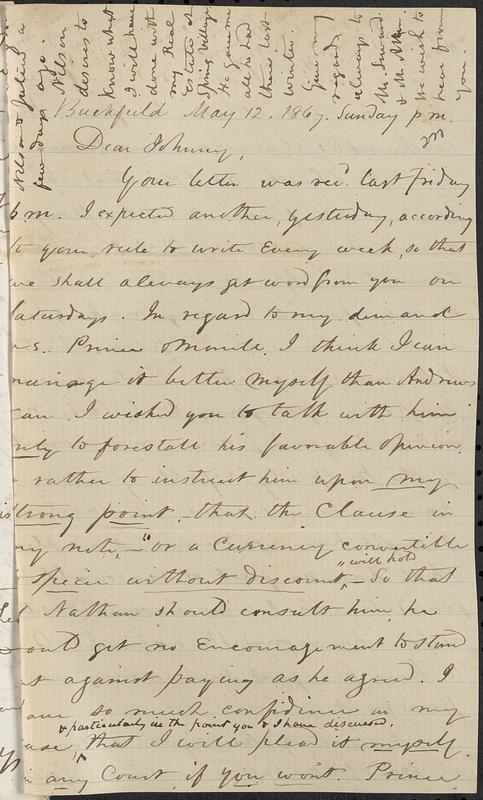 Nelson & Julina a
few days ago.
Nelson
desires to
know what
I will have
done with
my Real
Estate at
Spring Village
He gave me
all he had
there last
winter.
Give my
regards
always to
Mr. Seward
& Mr. Allen.
We wish to
hear from
you.
Buckfield May 12, 1867. Sunday p m.
Dear Johnny,
Your letter was rec'd. last friday
p m. I expected another, yesterday, according
to your rule to write Every week, so that
we shall always get word from you on
Saturdays. In regard to my demand
vs. Prince I think I can
manage it better myself than Andrews
can. I wished you to talk with him
only to forestall his favorable opinion
rather to instruct him upon my
strong point, - that the Clause in
my note, - "or a Currency convertible
specie without discount," - "will hold So that
Nathan should consult him, he
would get no Encouragement to stand
out against paying as he agreed. I
have so much confidence in my
& particularly in the point you & I have discussed,
case that I will plead it myself
in any Court, if you won't. Prince